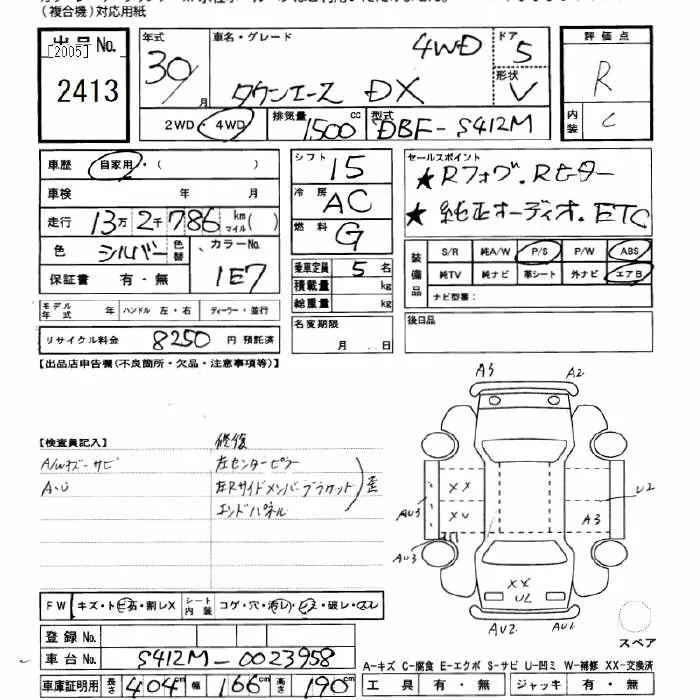 (複合機)対応用紙
出品No.
[2005]
2413
年式
30/
月
車名・グレード
4WD
タウンエース DX
ドア
5
形状
V
2WD・4WD
排気量
1500
cc
型式
DBF-S412M
評価点
R
内装
C
車歴 自家用・( )
車検 年 月
走行 13万 2千 786 km マイル( )
色 シルバー 色替 カラーNo.
保証書 有・無 1E7
モデル年式 年 ハンドル 左・右 ディーラー・並行
リサイクル料金 8250 円 預託済
シフト 15
冷房 AC
燃料 G
乗車定員 5 名
積載量 kg
総重量 kg
名変期限
月 日
セールスポイント
★Rフォグ.Rヒーター
★純正オーディオ.ETC
装備品
S/R 純A/W P/S P/W ABS
純TV 純ナビ 革シート 外ナビ エアB
ナビ型番:
後日品
【出品店申告欄(不良箇所・欠品・注意事項等)】
【検査員記入】 修復
A/Wキズ-サビ 左センターピラー
A・U 左Rサイドメンバーブラケット 歪
エンドパネル
A3 A2
XX
XU
U2
AU3
A3
AU3
XX
U2
AU2 AU1
スペア
FW キズ・トビ石・割レX シート内装 コゲ・穴・汚レ・シミ・破レ・スレ
登録No.
車台No. S412M-0023958
車庫証明用 長さ 404 cm 幅 166 cm 高さ 190 cm
A-キズ C-腐食 E-エクボ S-サビ U-凹ミ W-補修 XX-交換済
工具 有・無 ジャッキ 有・無